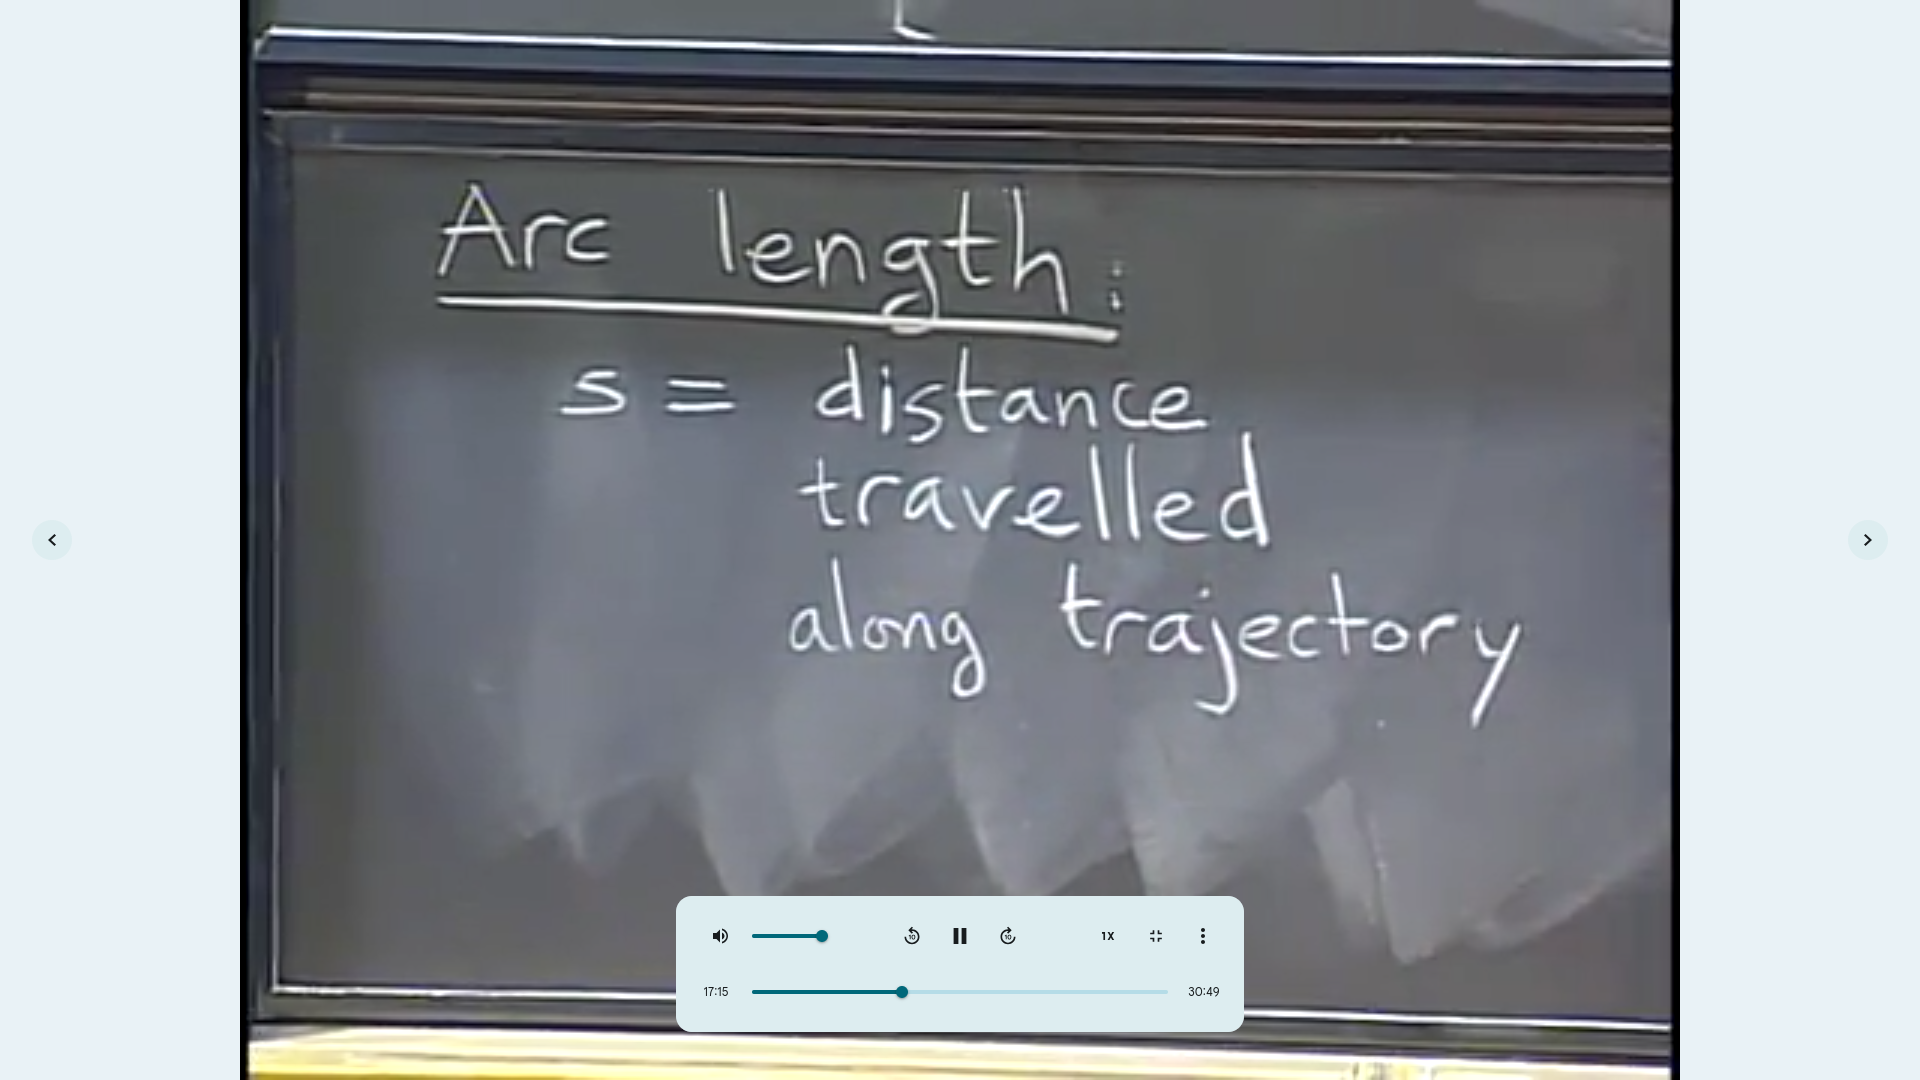 Arc length:
s = distance
travelled
along trajectory
10
10
1X
17:15
30:49